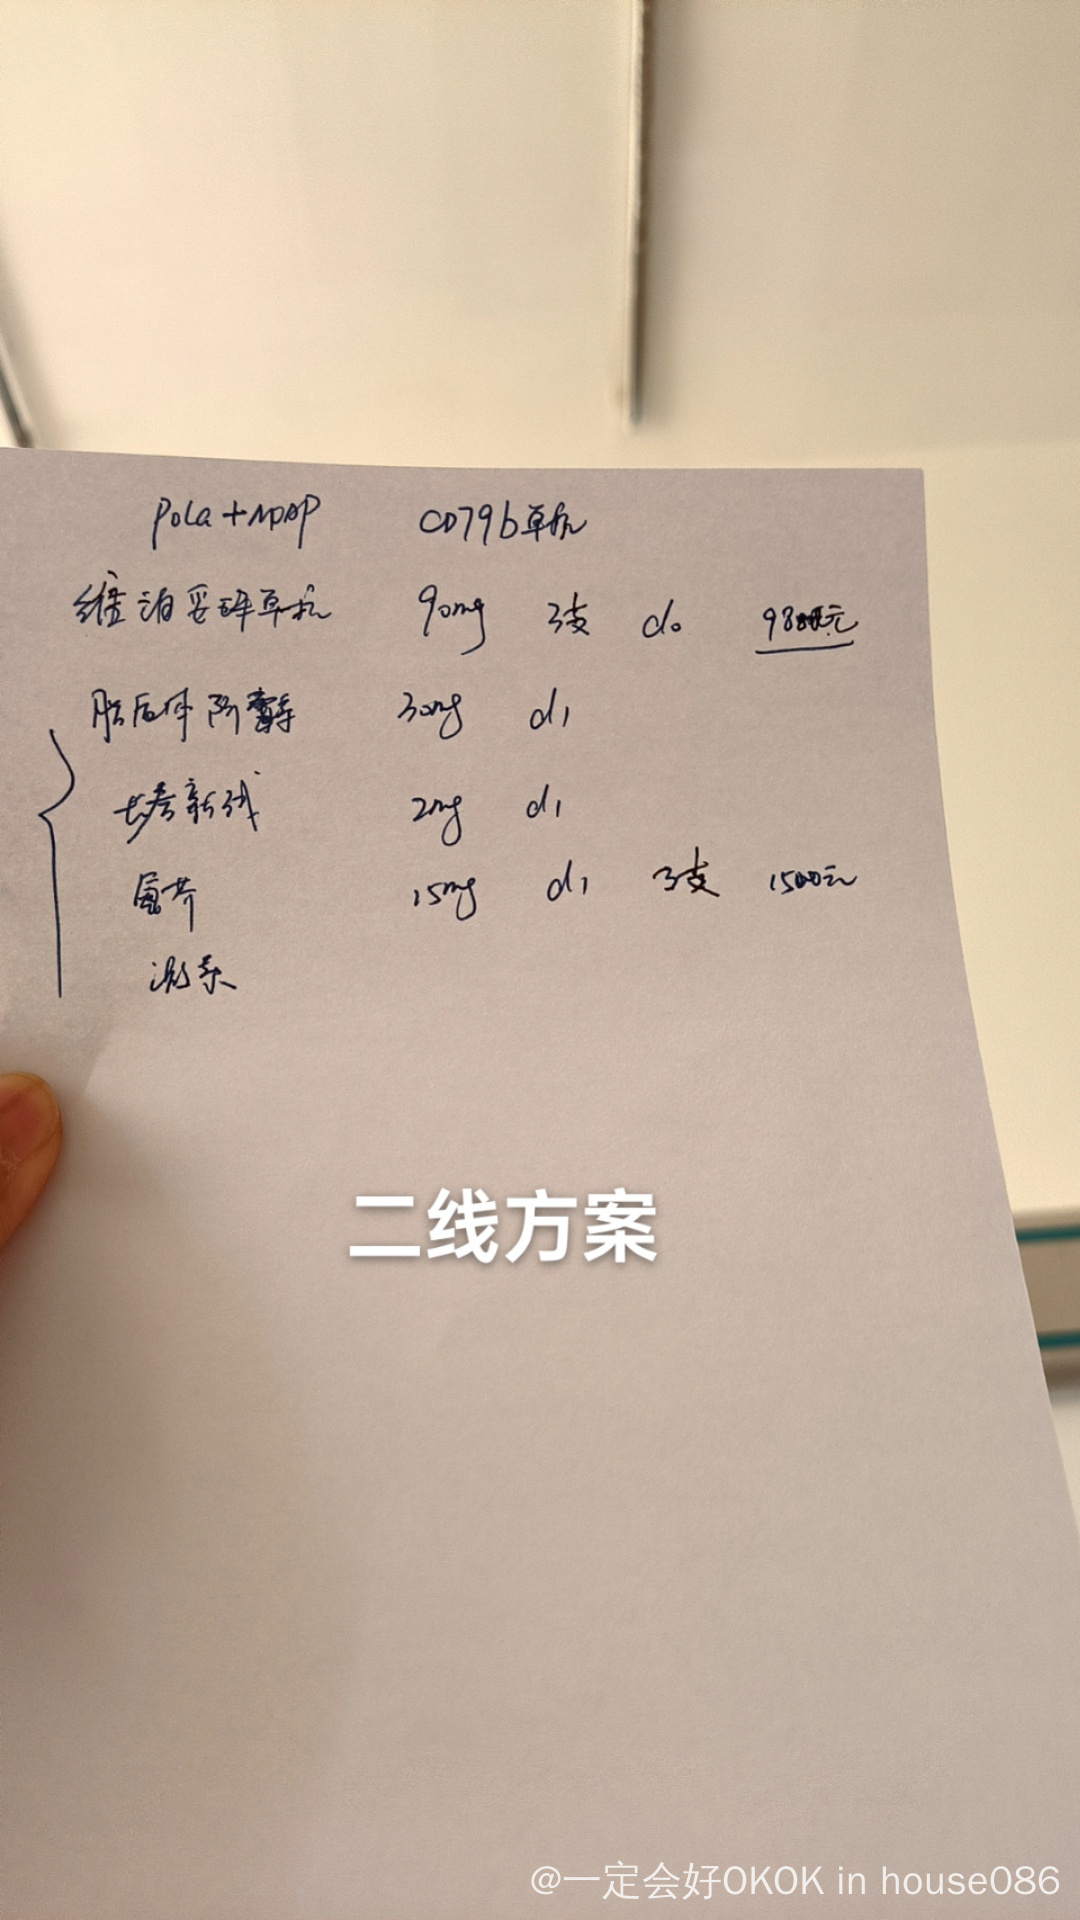 Pola + VDAP CD79b单抗
维泊妥珠单抗 90mg 3支 d0 元
脂质体阿霉素 30mg d1
长春新碱 2mg d1
15mg d1 3支 1500元
泼尼
二线方案
@一定会好OKOK in house086